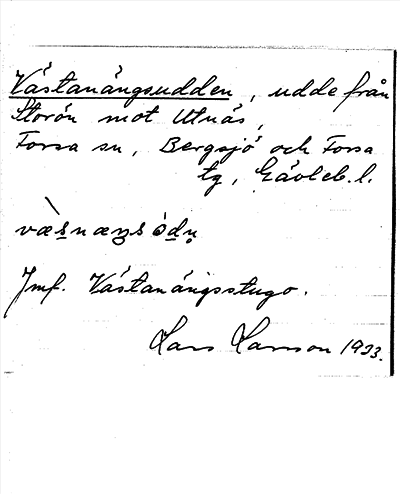 Västanängsudden, udde från
Storön mot Utnäs,
Forsa sn, Bergsjö och Forsa
tg, Gävleb. l.
Jmf. Västanängsstugo.
Lars Larsson 1933.